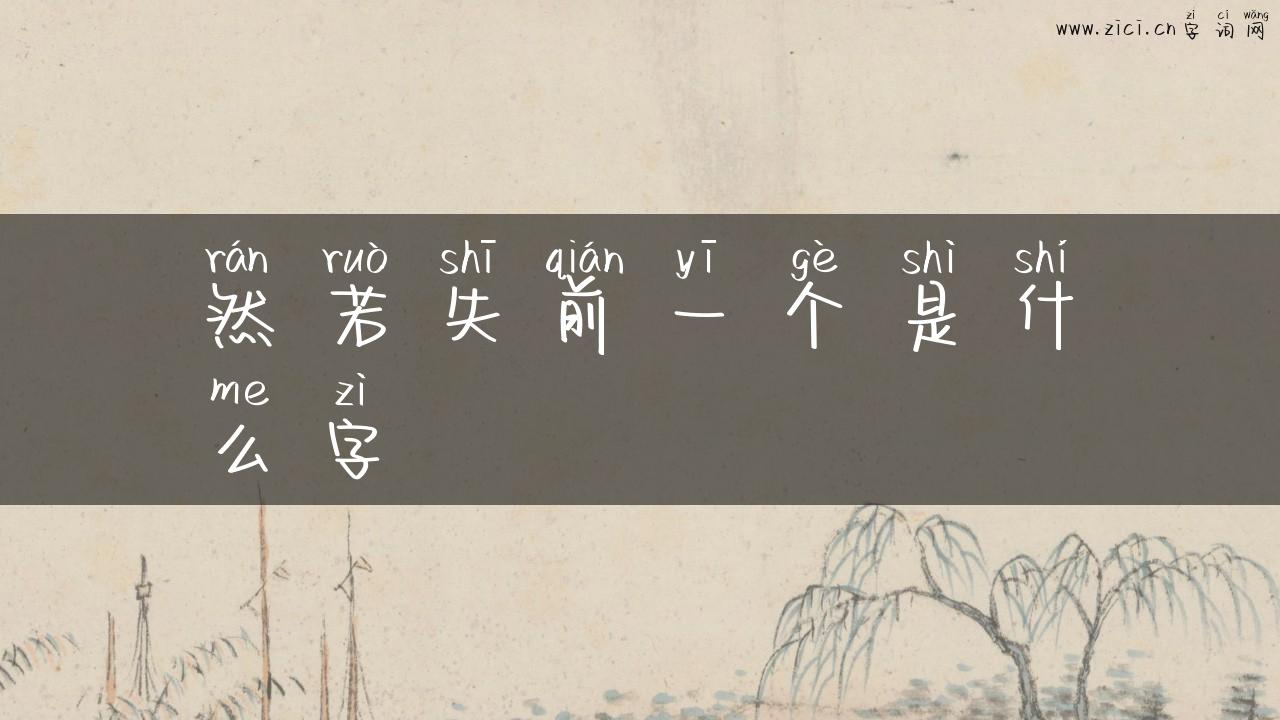 zì cí wǎng
www.zici.cn 字 词 网
rán ruò shī qián yī gè shì shí
然 若 失 前 一 个 是 什
me zì
么 字